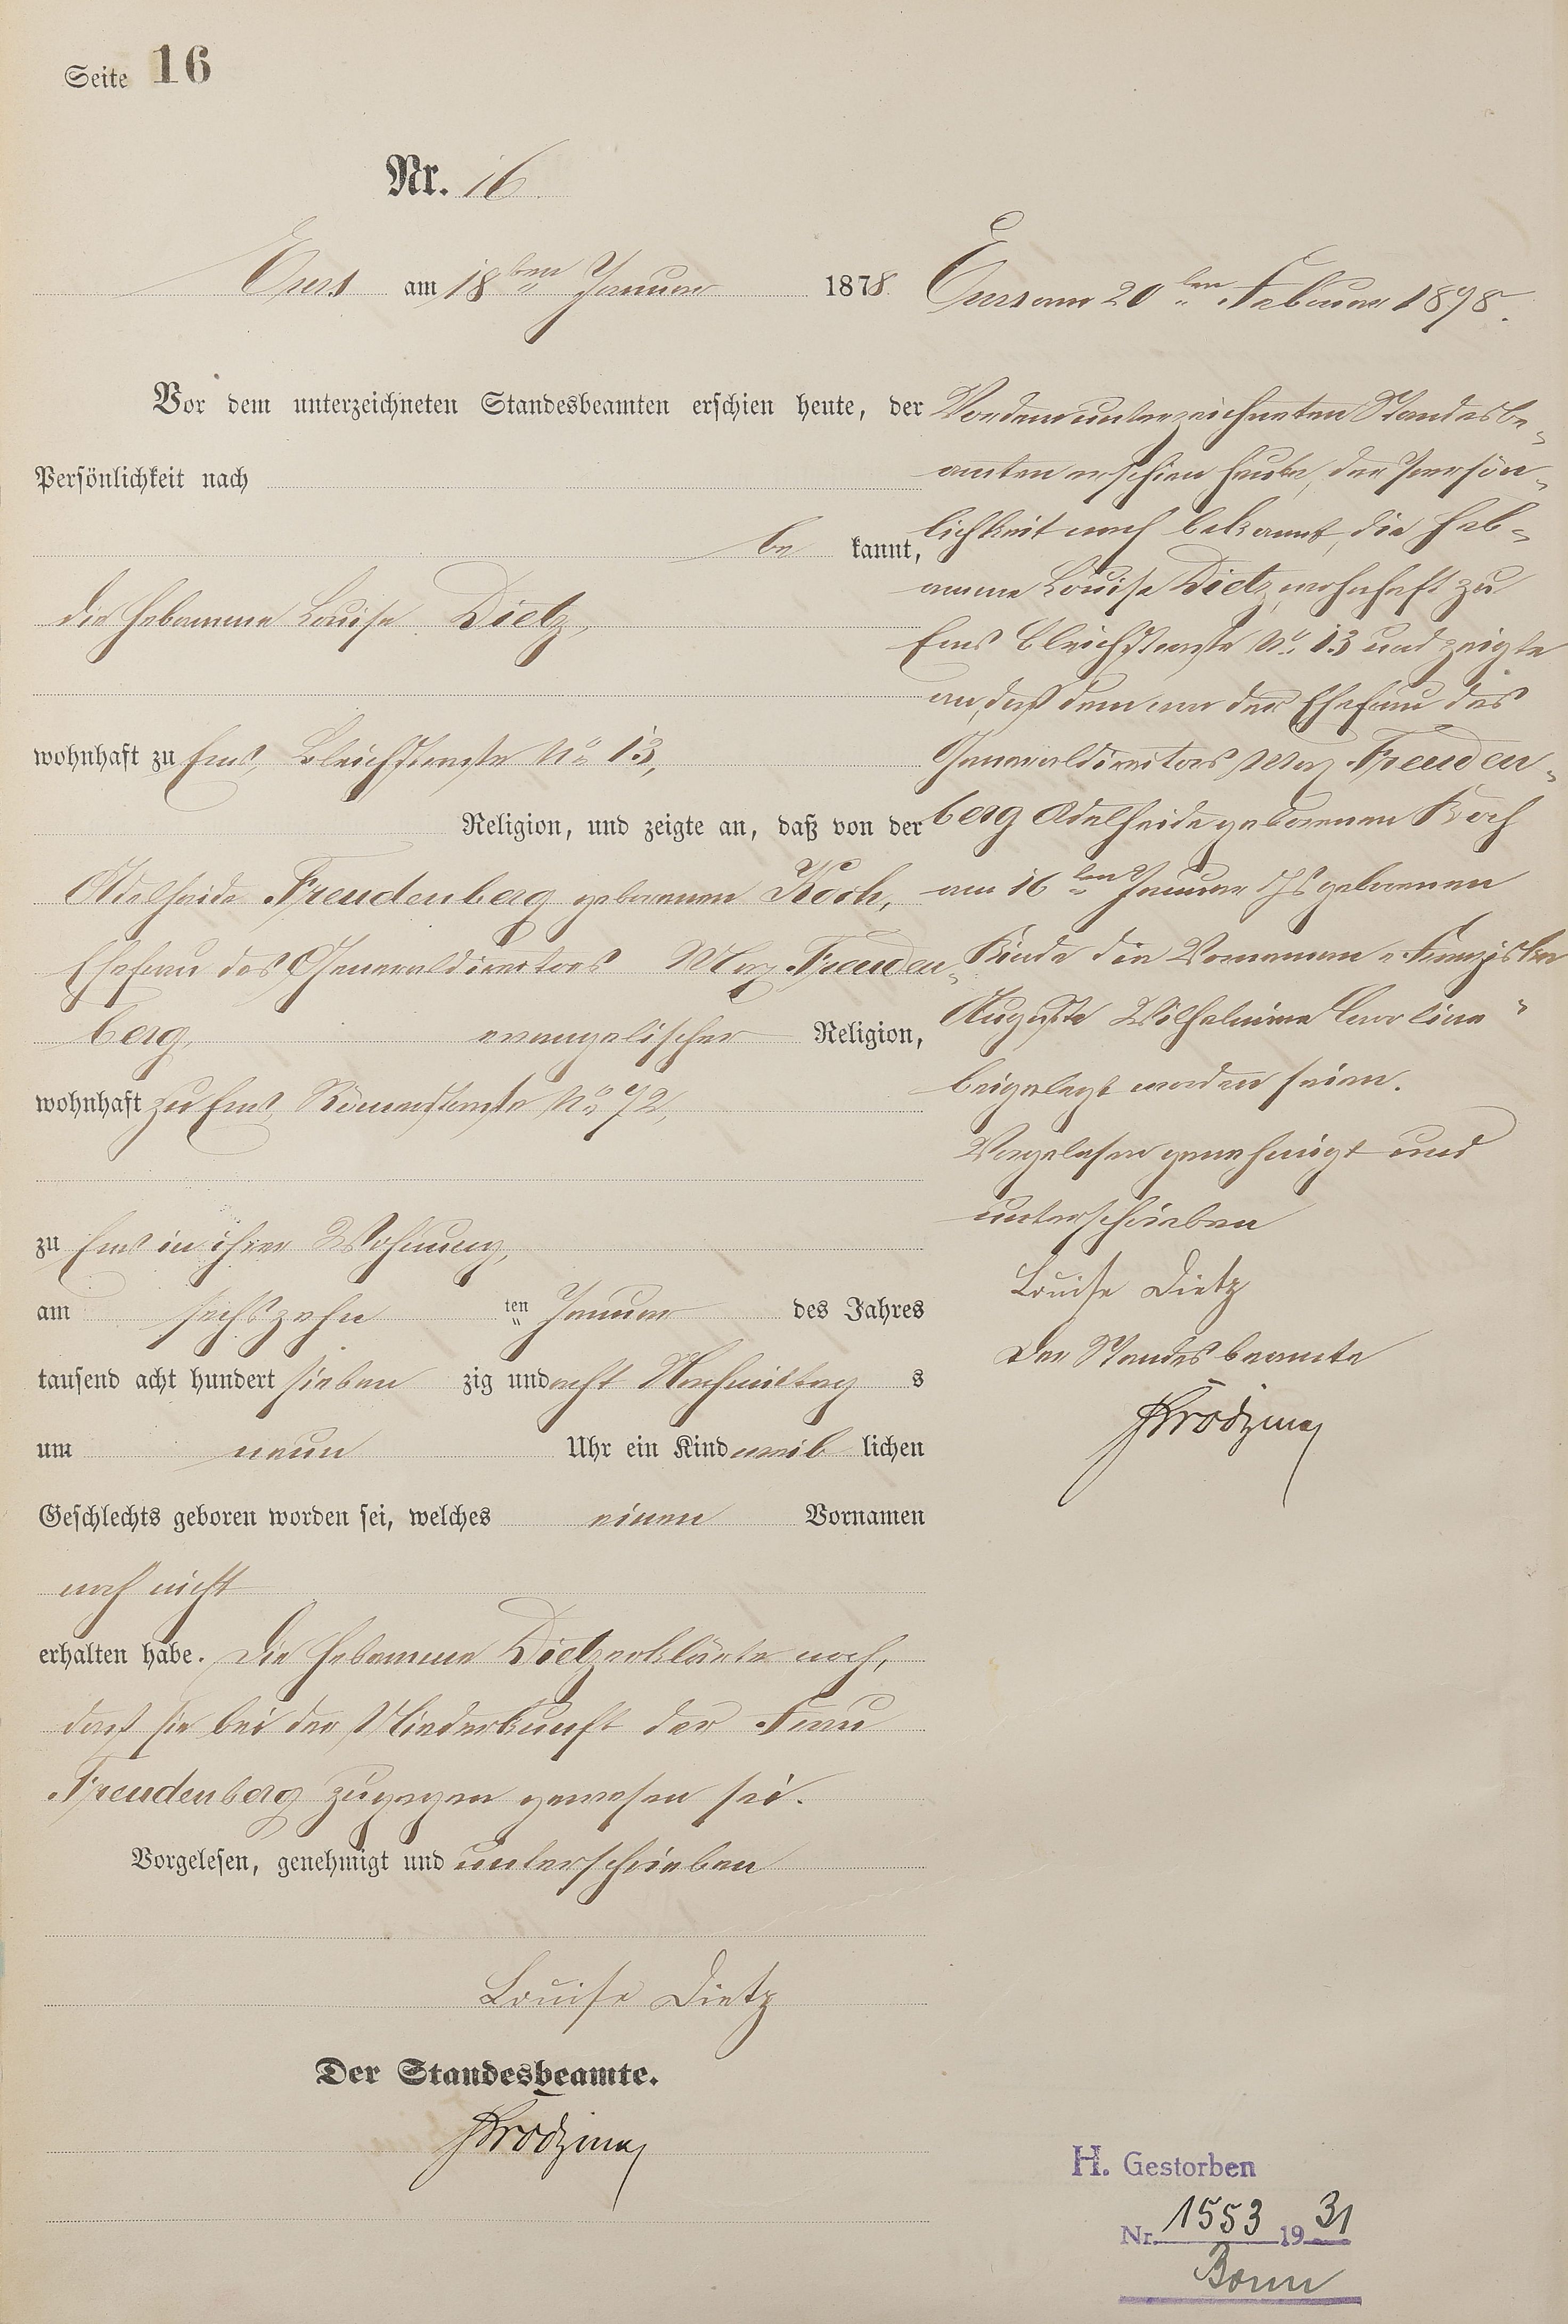 Seite 16
Nr. 16
Ems am 18ten Januar 1878
Vor dem unterzeichneten Standesbeamten erschien heute, der
Persönlichkeit nach
be kannt,
die Hebamme Louise Dietz,
wohnhaft zu Ems, Bleichstraße No. 13,
Religion, und zeigte an, daß von der
Adelheide Freudenberg geborenen Koch,
Ehefrau des Generaldirectors Max Freuden-
berg, evangelischer Religion,
wohnhaft zu Ems, Römerstraße No. 72,
zu Ems in ihrer Wohnung,
am sechszehn ten Januar des Jahres
tausend acht hundert sieben zig und acht Nachmittag s
um neun Uhr ein Kind weib lichen
Geschlechts geboren worden sei, welches einen Vornamen
noch nicht
erhalten habe. Die Hebamme Dietz erklärte noch,
daß sie bei der Niederkunft der Frau
Freudenberg zugegen gewesen sei.
Vorgelesen, genehmigt und unterschrieben
Louise Dietz
Der Standesbeamte.
Ems am 20ten Februar 1878.
Vor dem unterzeichneten Standesbe-
amten erschien heute, der Persön-
lichkeit nach bekannt, die Heb-
amme Louise Dietz, wohnhaft zu
Ems Bleichstraße No. 13 und zeigte
an, daß dem von der Ehefrau des
Generaldirectors Max Freuden-
berg Adelheide geborenen Koch
am 16ten Januar d Js geborenen
Kinde die Vornamen „Franziska
Auguste Wilhelmine Caroline"
beigelegt worden seien.
Vorgelesen genehmigt und
unterschrieben
Louise Dietz
Der Standesbeamte
H. Gestorben
Nr. 1553 1931
Bonn